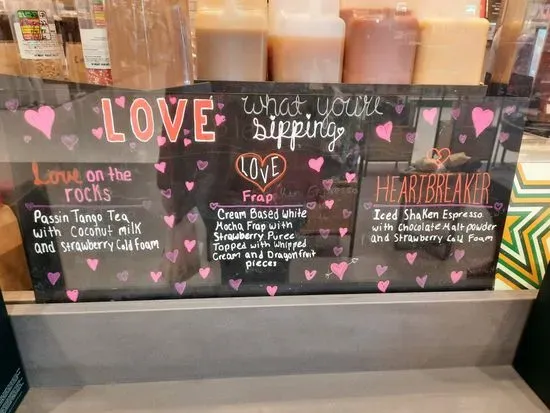 LOVE what you're
sipping
Love on the
rocks
Passin Tango Tea
with Coconut milk
and Strawberry Cold Foam
LOVE
Frap
Cream Based White
Mocha Frap with
Strawberry Puree
Topped with Whipped
Cream and Dragonfruit
pieces
HEARTBREAKER
Iced Shaken Espresso
with Chocolate Malt powder
and Strawberry Cold Foam